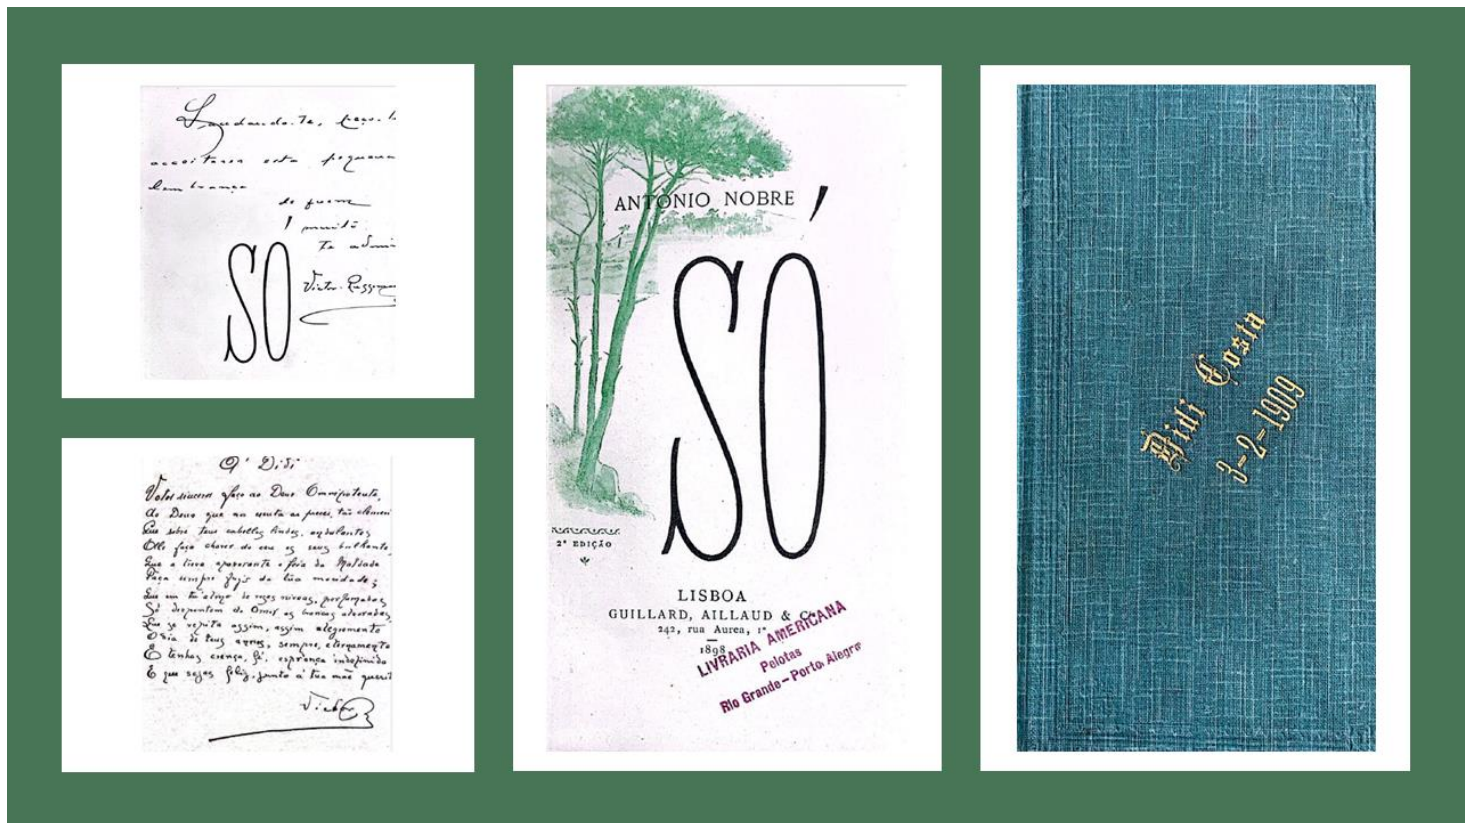 Saudando-te, peço-t
acceitares esta pequena
lembrança
de quem
muito
te admir
SÓ
Victor
A' Didi
Votos sinceros faço ao Deus Omnipotente,
Ao Deus que na escuta as preces, tão clemen
Que sobre teus cabellos lindos, ondulantes
Elle faça chover do ceu os seus brilhante
Que a livra apavorante e feia da Maldade
Faça sempre fugir da tua mocidade;
Que em tu'alma de rosas niveas, perfumadas
Só despontem do Amor as
Que se repita assim, assim alegremente
O dia de teus annos, sempre, eternamente
E tenhas crença, fé, esprança indefinida
E que sejas feliz, junto á tua mãe querid
Victor
ANTÓNIO NOBRE
SÓ
2ª EDIÇÃO
LISBOA
GUILLARD, AILLAUD & Cª
242, rua Aurea, 1º
1898
LIVRARIA AMERICANA
Pelotas
Rio Grande – Porto Alegre
Didi Costa
3-2-1909